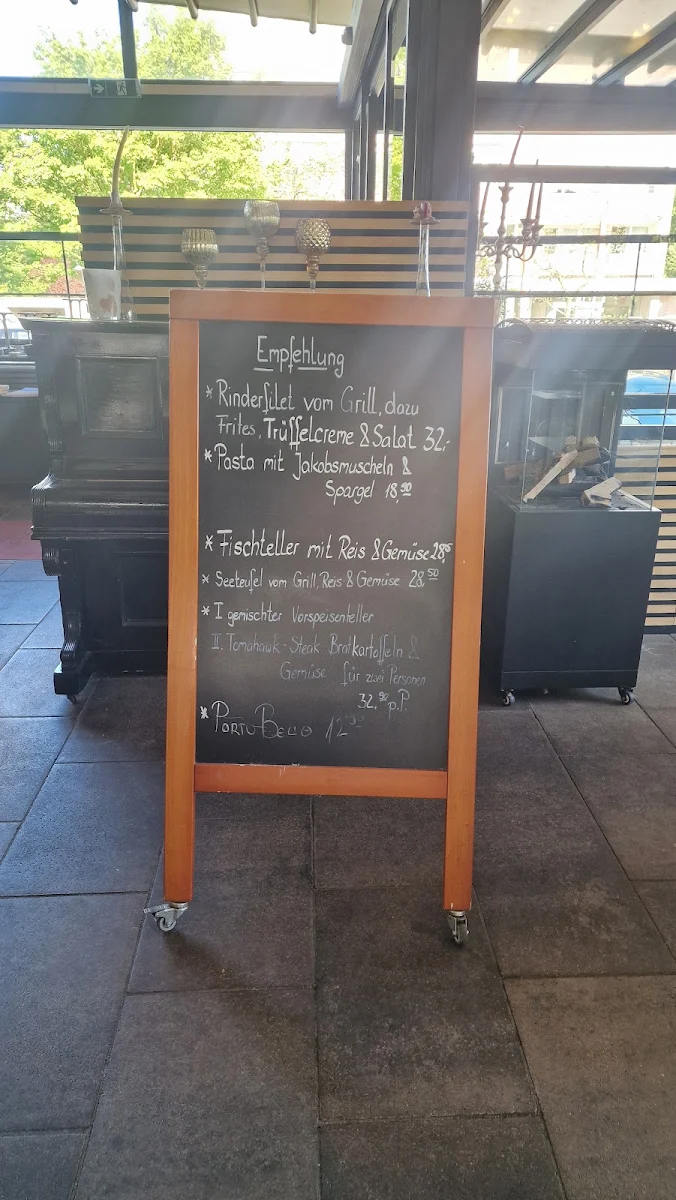 Empfehlung
* Rinderfilet vom Grill, dazu
Frites, Trüffelcreme & Salat 32,-
* Pasta mit Jakobsmuscheln &
Spargel 18,90
* Fischteller mit Reis & Gemüse
* Seeteufel vom Grill, Reis & Gemüse 28,50
* I gemischter Vorspeisenteller
II. Tomahawk-Steak Bratkartoffeln &
Gemüse für zwei Personen
32,90 p.P.
* PORTO BELLO